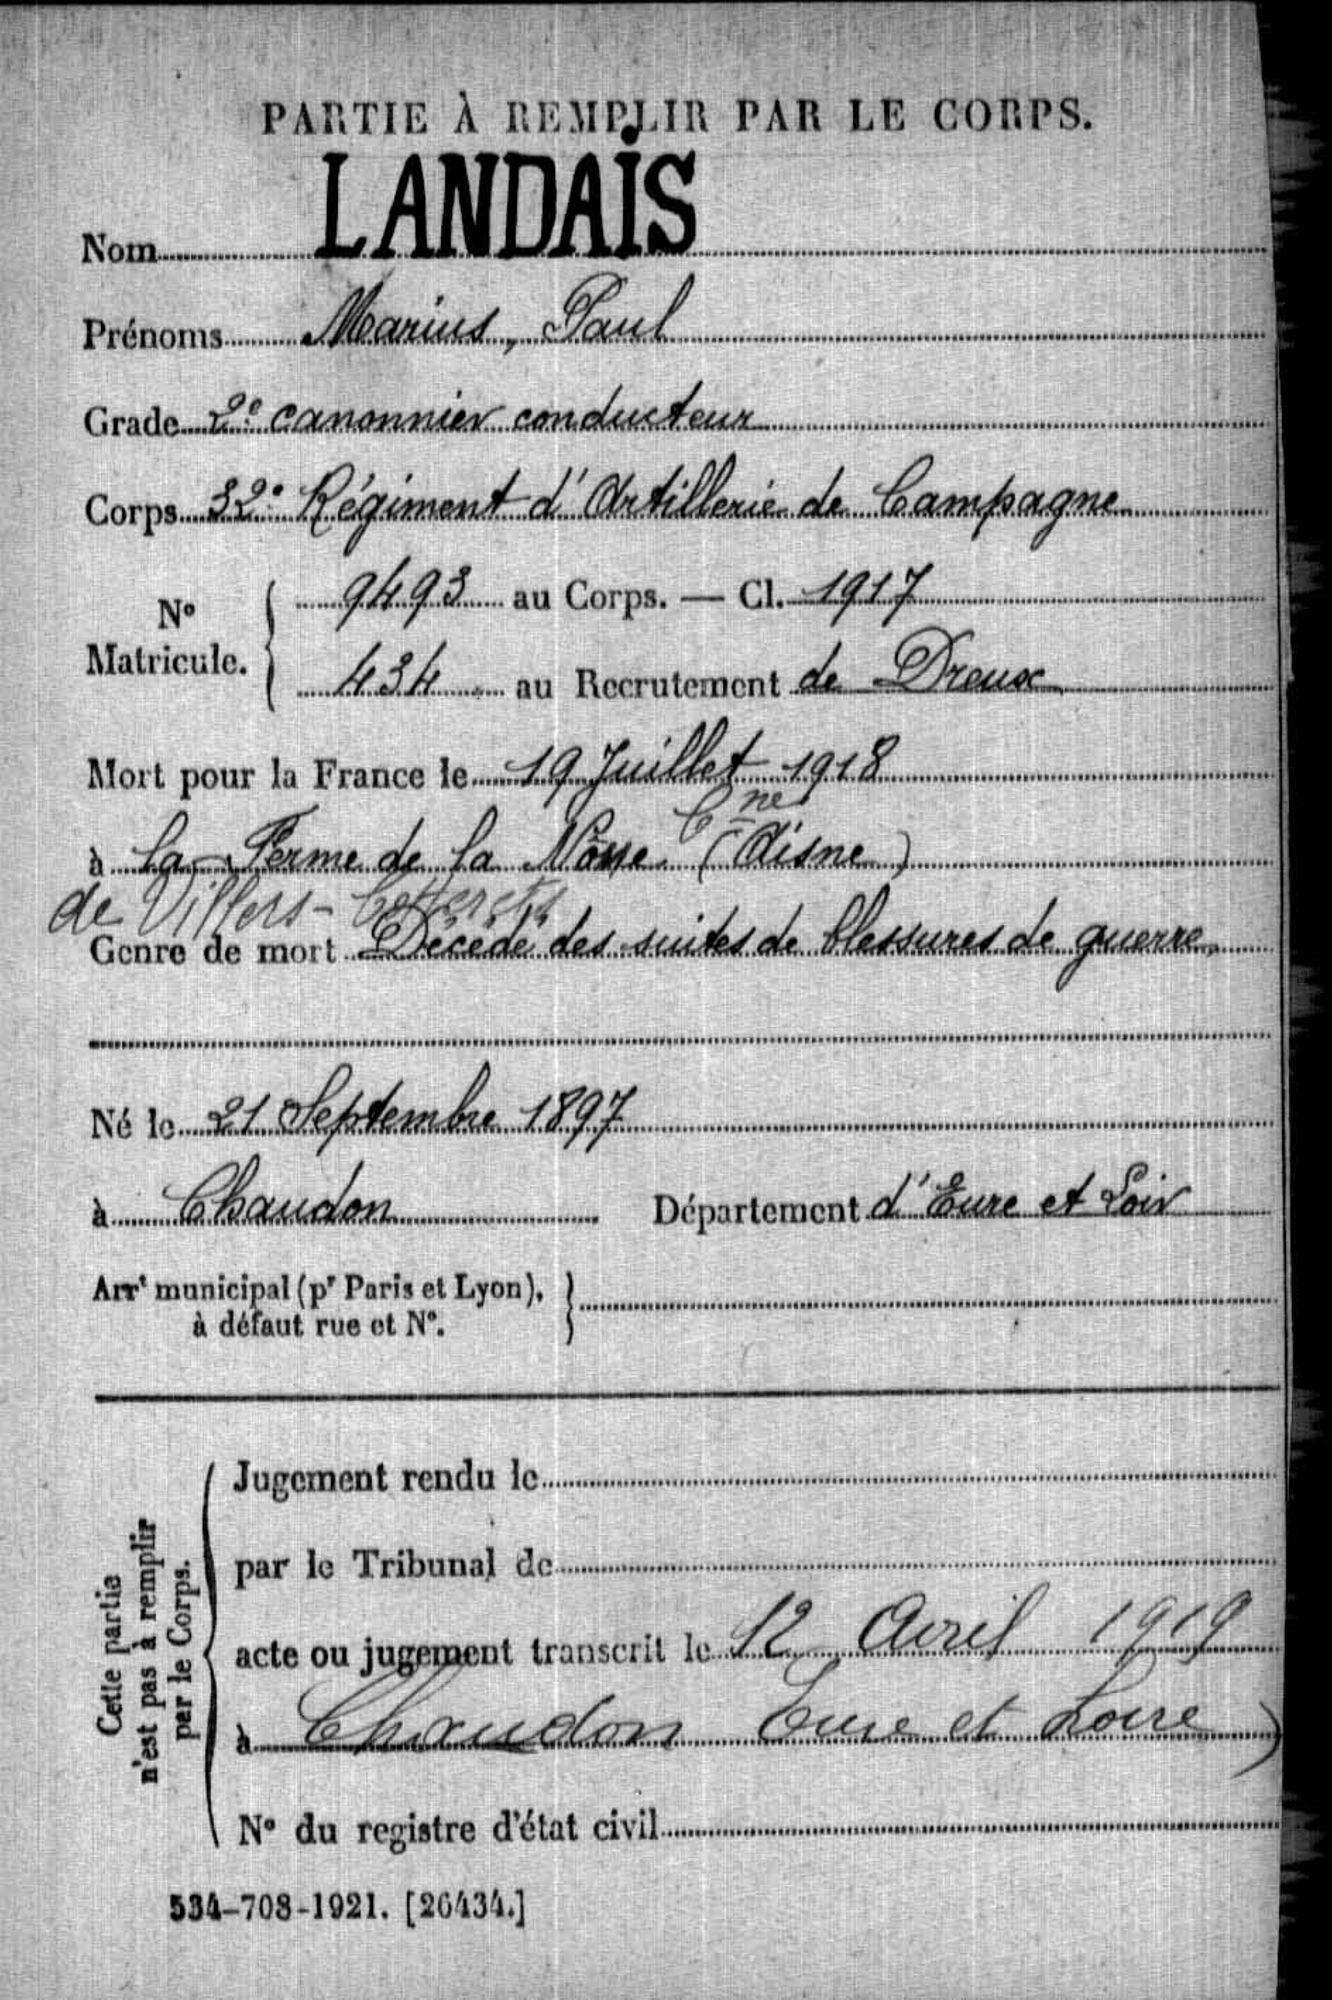 PARTIE À REMPLIR PAR LE CORPS.
Nom LANDAIS
Prénoms Marius, Paul
Grade 2e canonnier conducteur
Corps 32e Régiment d'Artillerie de Campagne
N° Matricule. 9493 au Corps. — Cl. 1917
434 au Recrutement de Dreux
Mort pour la France le 19 Juillet 1918
à la Ferme de la (Aisne) Cne
de Villers-Cotterets
Genre de mort Décédé des suites de blessures de guerre,
Né le 21 Septembre 1897
à Chaudon Département d'Eure et Loir
Arrt municipal (pr Paris et Lyon),
à défaut rue et N°.
Cette partie
n'est pas à remplir
par le Corps.
Jugement rendu le
par le Tribunal de
acte ou jugement transcrit le 12 Avril 1919
à Chaudon Eure et Loire)
N° du registre d'état civil
534-708-1921. [26434.]